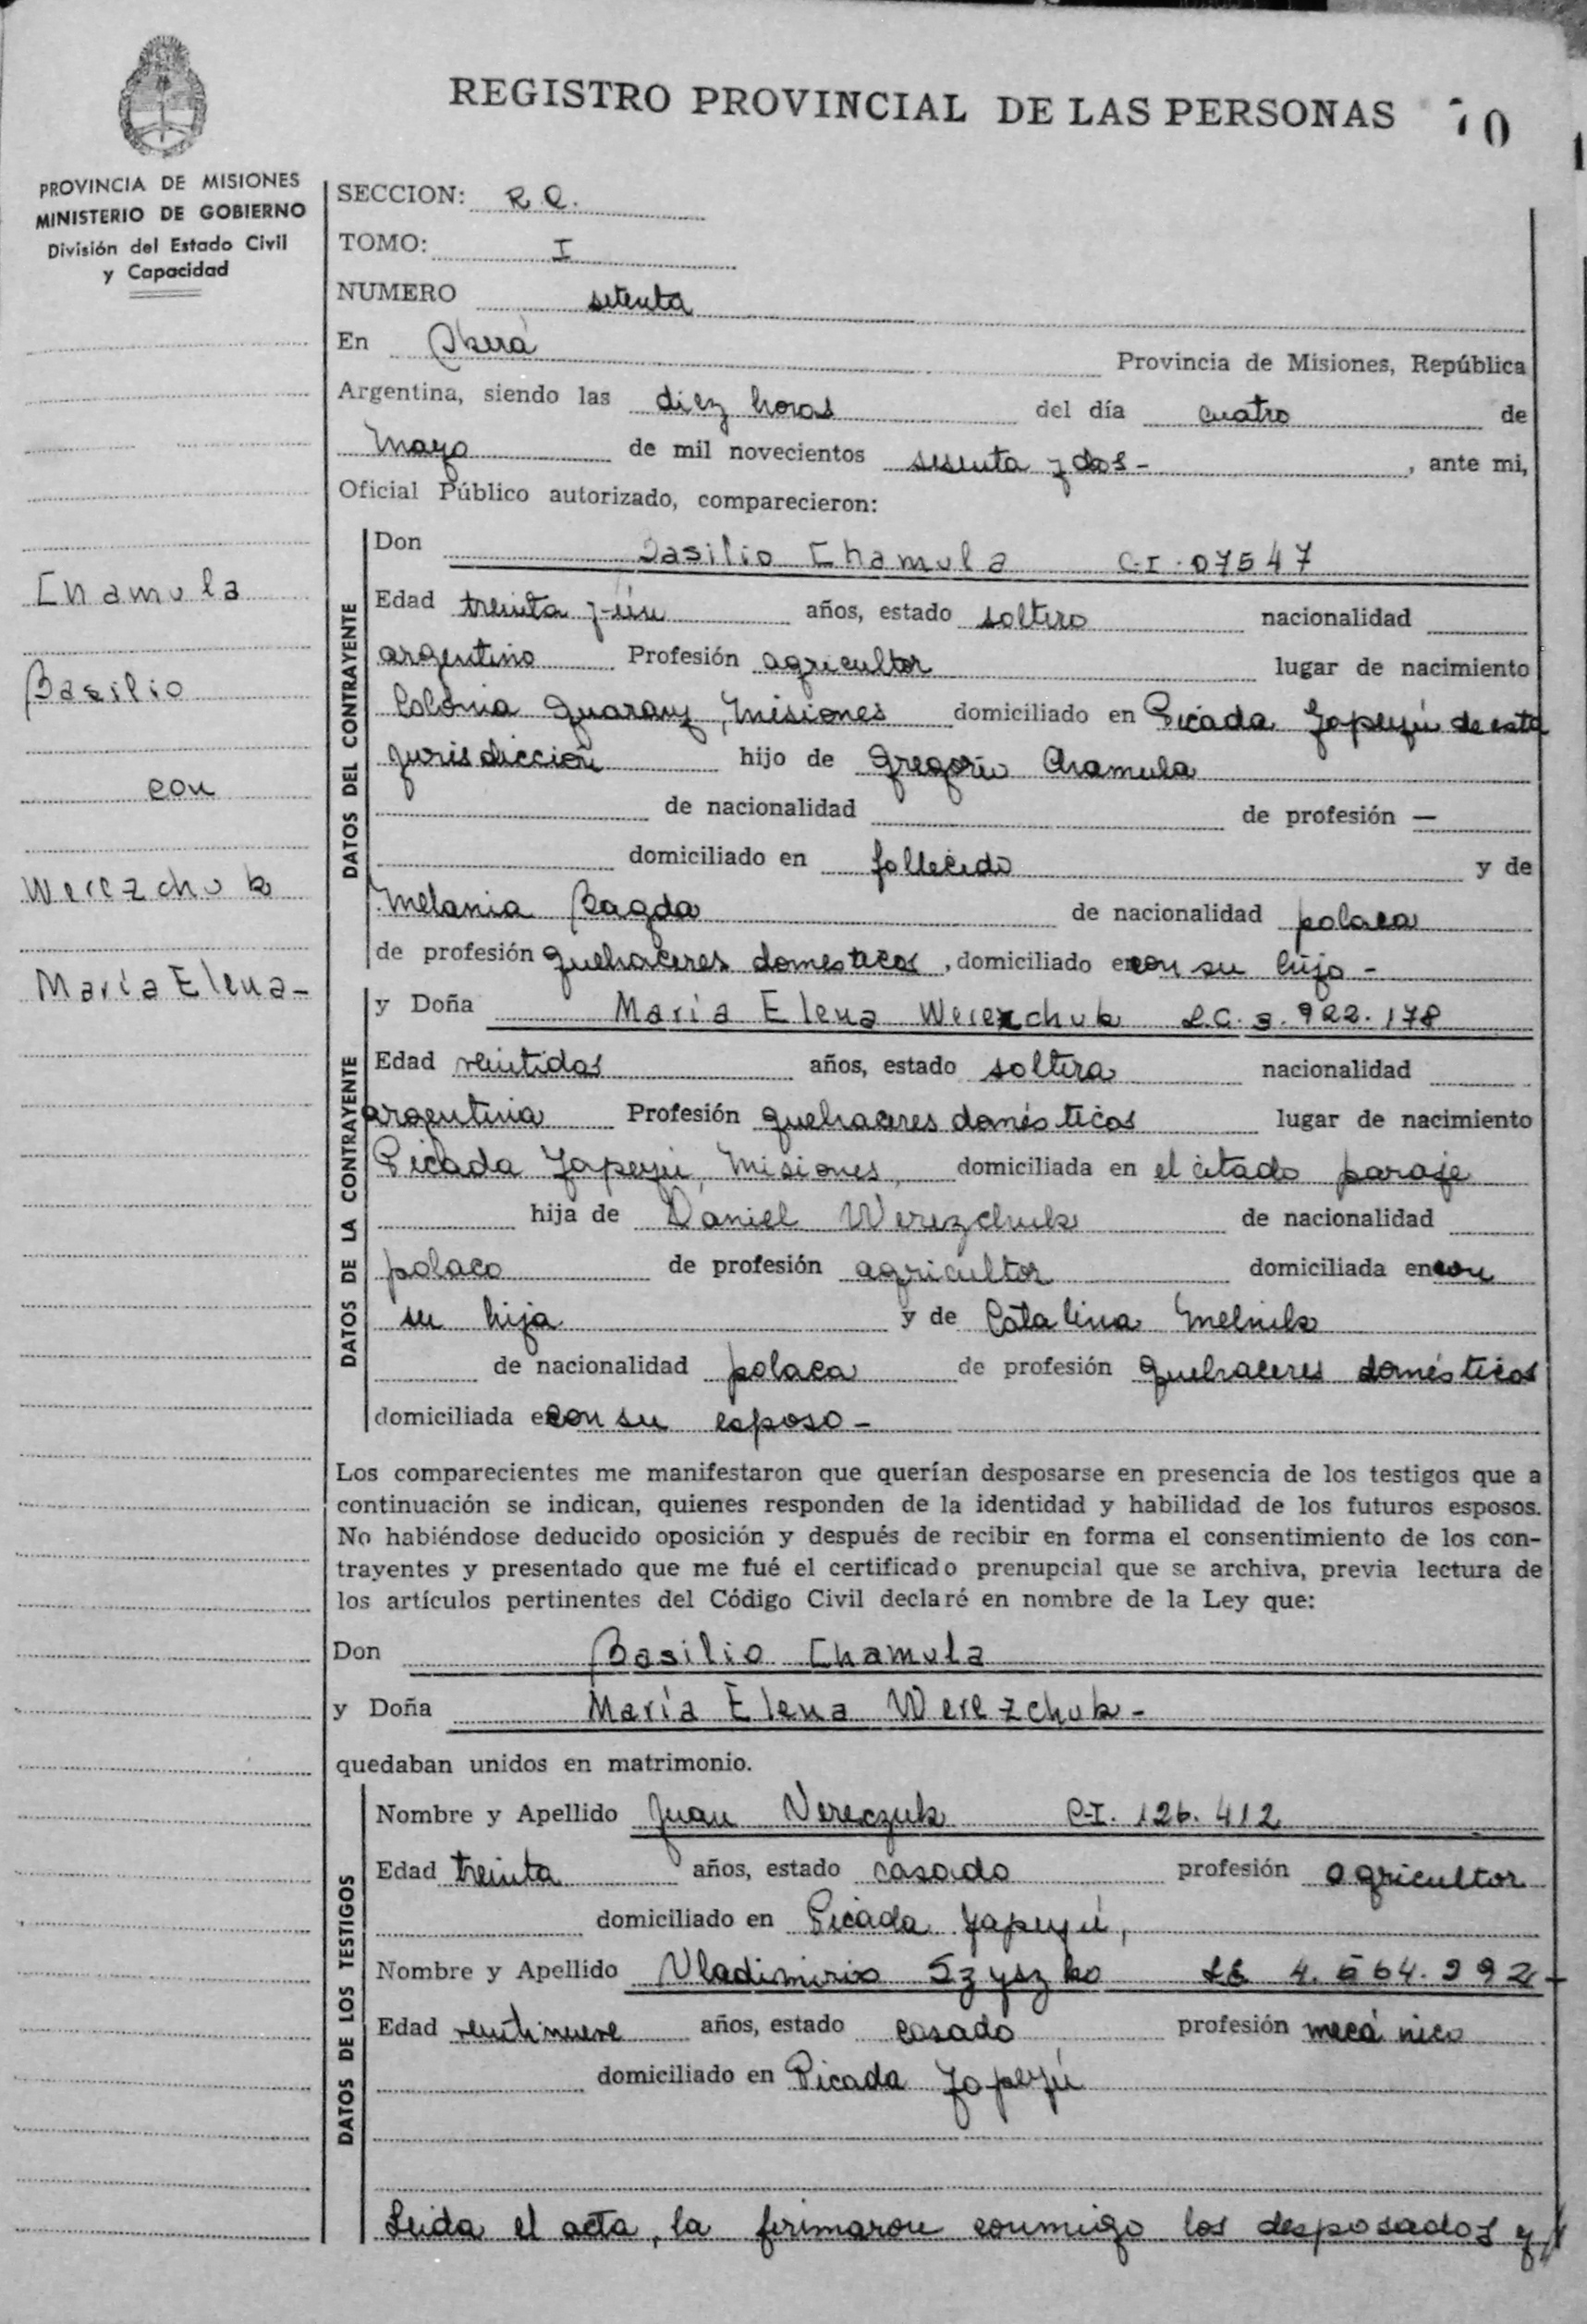 REGISTRO PROVINCIAL DE LAS PERSONAS 70
PROVINCIA DE MISIONES
MINISTERIO DE GOBIERNO
División del Estado Civil
y Capacidad
Chamula
Basilio
con
Werezchuk
María Elena-
SECCION: R.Q.
TOMO: I
NUMERO setenta
En Oberá Provincia de Misiones, República
Argentina, siendo las diez horas del día cuatro de
Mayo de mil novecientos sesenta y dos - , ante mi,
Oficial Público autorizado, comparecieron:
DATOS DEL CONTRAYENTE
Don Basilio Chamula C.I. 07547
Edad treinta y un años, estado soltero nacionalidad
argentino Profesión agricultor lugar de nacimiento
Colonia Guarany, Misiones domiciliado en Picada Yapeyú de esta
jurisdicción hijo de Gregorio Chamula
de nacionalidad de profesión —
domiciliado en fallecido y de
Melania Bagda de nacionalidad polaca
de profesión quehaceres domesticos , domiciliado en con su hijo -
DATOS DE LA CONTRAYENTE
y Doña María Elena Werezchuk L.C. 3.922.178
Edad veintidos años, estado soltera nacionalidad
argentina Profesión quehaceres domésticos lugar de nacimiento
Picada Yapeyú, Misiones, domiciliada en el citado paraje
hija de Daniel Werezchuk de nacionalidad
polaco de profesión agricultor domiciliada en con
su hija y de Catalina Melnik
de nacionalidad polaca de profesión quehaceres domésticos
domiciliada en con su esposo -
Los comparecientes me manifestaron que querían desposarse en presencia de los testigos que a
continuación se indican, quienes responden de la identidad y habilidad de los futuros esposos.
No habiéndose deducido oposición y después de recibir en forma el consentimiento de los con-
trayentes y presentado que me fué el certificado prenupcial que se archiva, previa lectura de
los artículos pertinentes del Código Civil declaré en nombre de la Ley que:
Don Basilio Chamula
y Doña María Elena Werezchuk -
quedaban unidos en matrimonio.
DATOS DE LOS TESTIGOS
Nombre y Apellido Juan Vereczuk C.I. 126.412
Edad treinta años, estado casado profesión agricultor
domiciliado en Picada Yapeyú,
Nombre y Apellido Vladimirio Szyszko LE 4.564.292
Edad veintinueve años, estado casado profesión mecánico
domiciliado en Picada Yapeyú
Leida el acta, la firmaron conmigo los desposados y